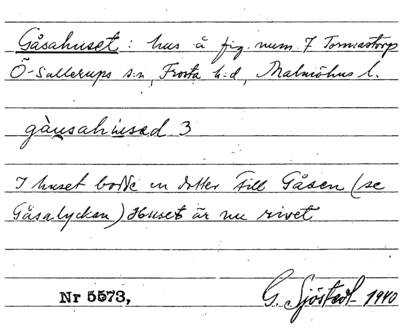 Gåsahuset: hus å fig. num. 7 Torrastorp
Ö-Sallerups s:n, Frosta h:d, Malmöhus l.
gåusahused 3
I huset bodde en dotter till Gåsen (se
Gåsalyckan) Huset är nu rivet
Nr 5573, G. Sjöstedt 1940